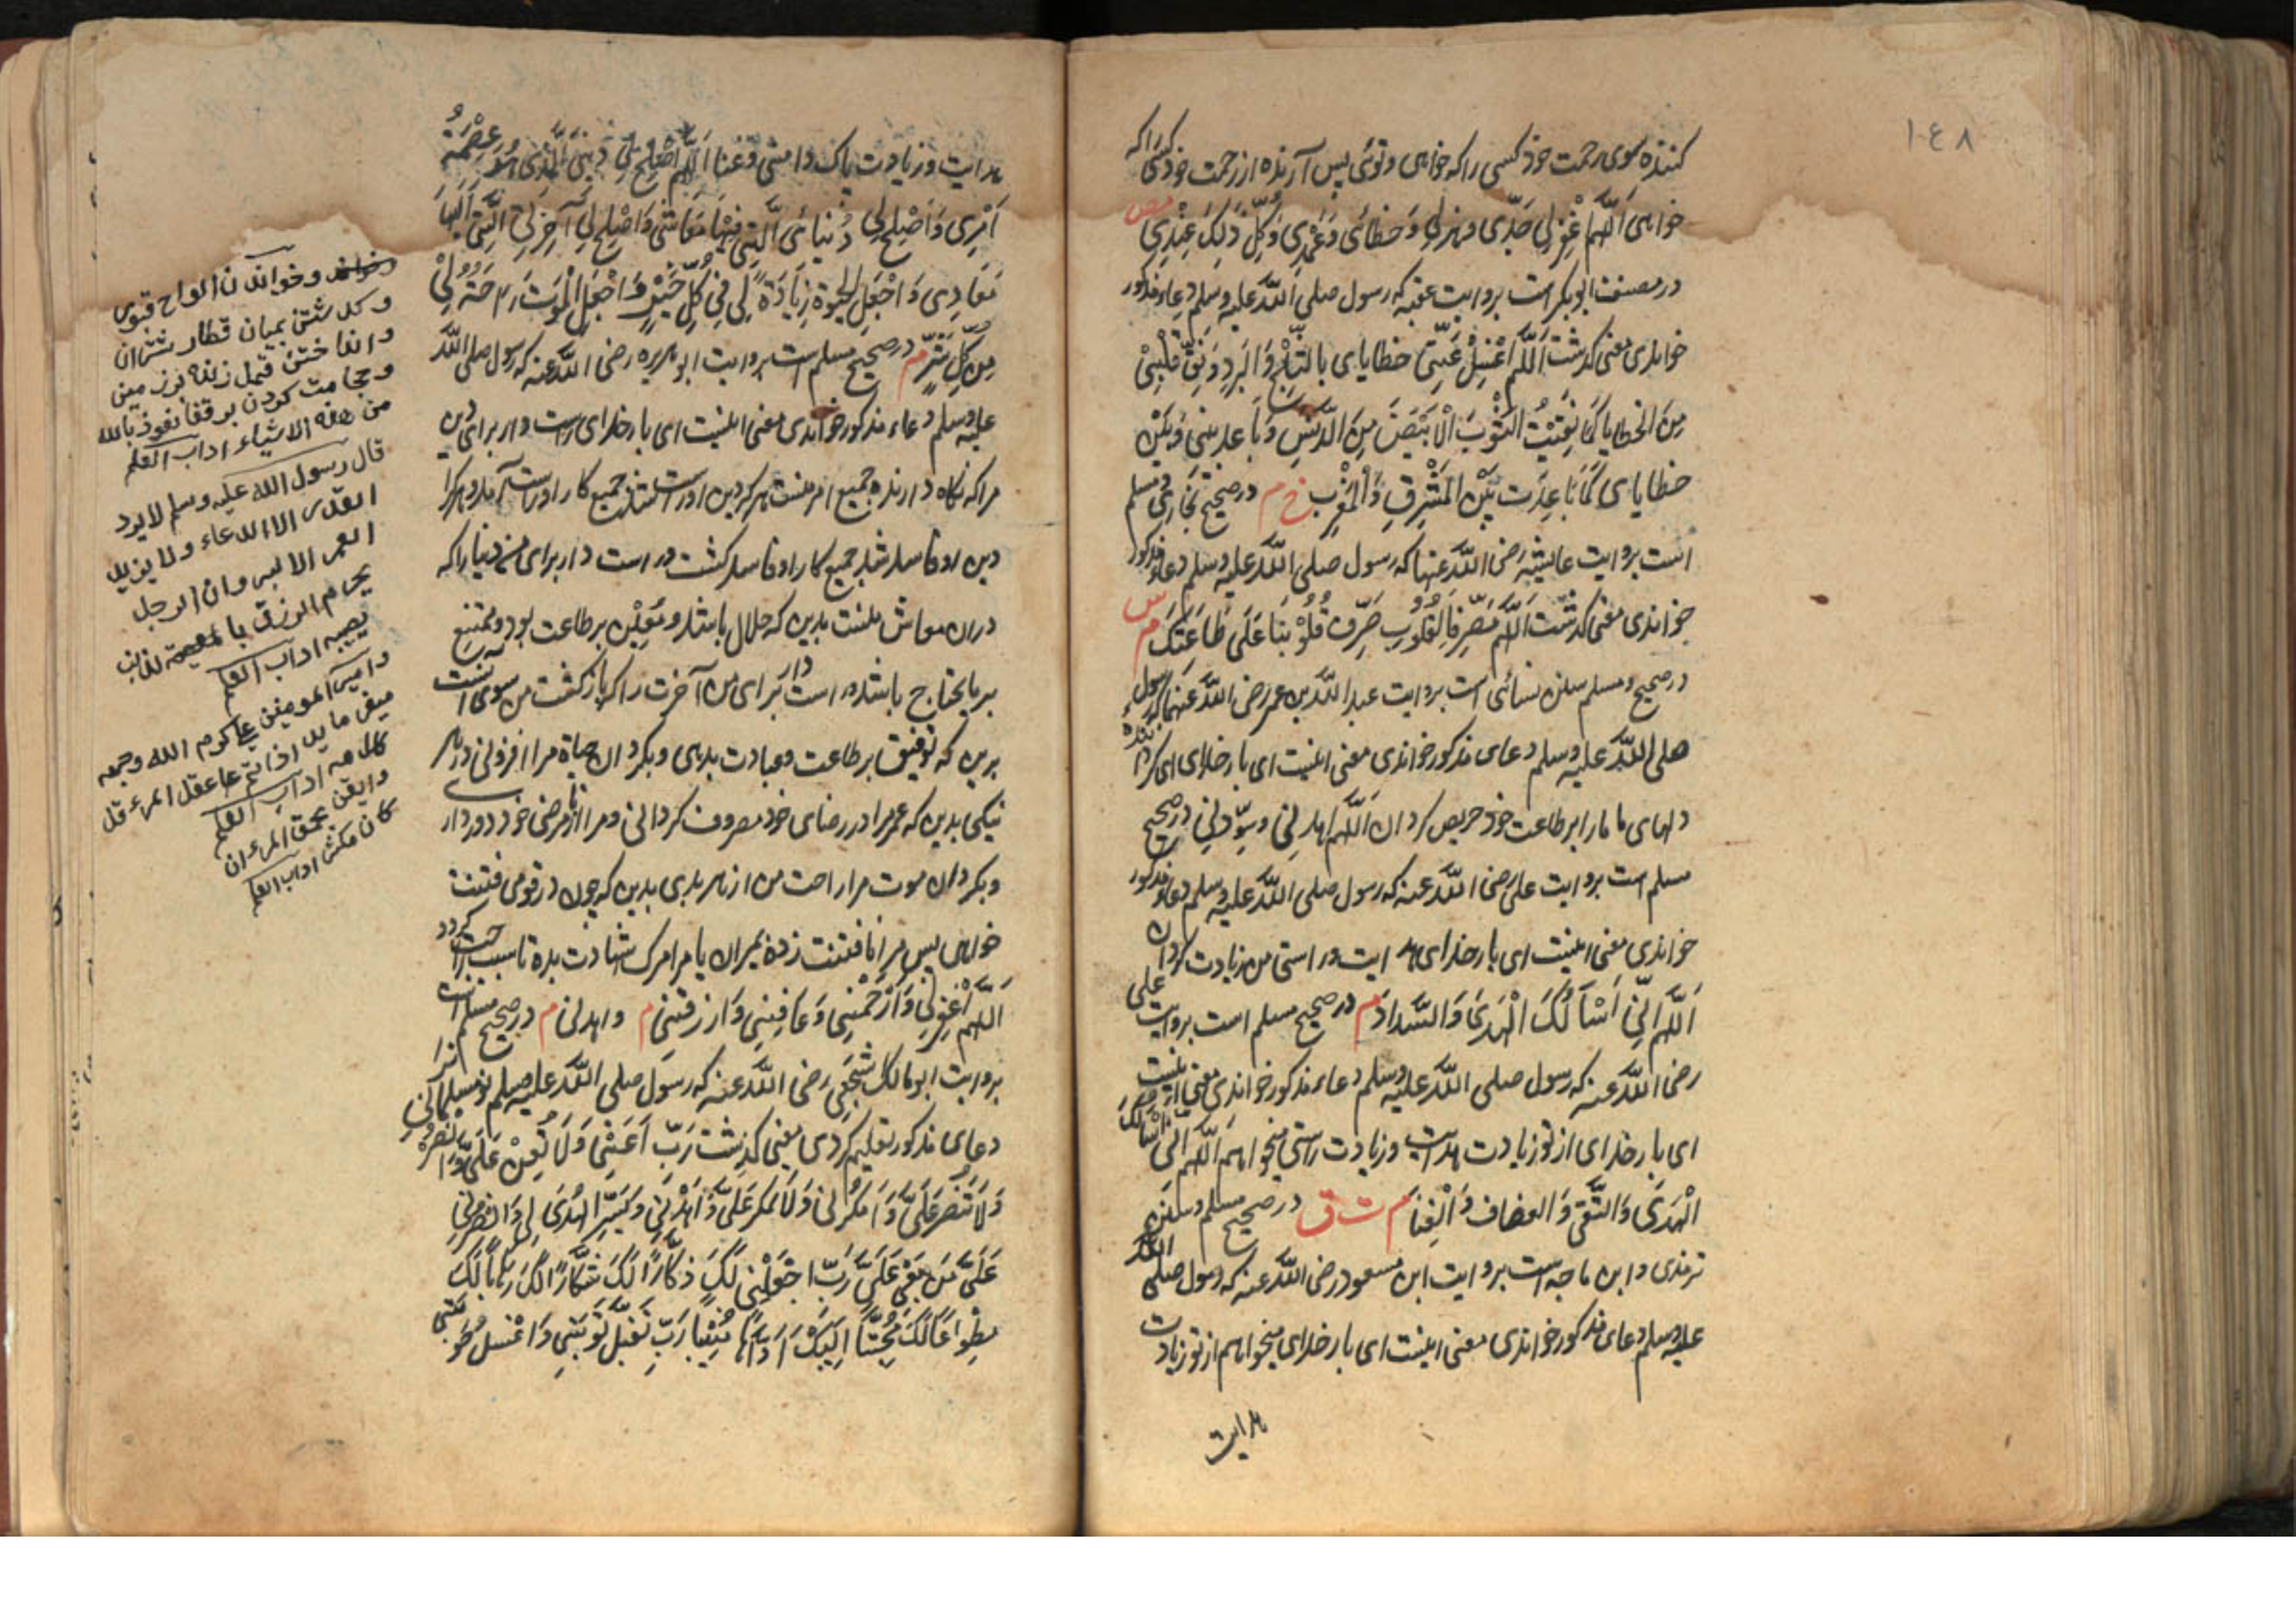 ١٤٨
کننده سوی رحمت خود کسی را که خواهی و توئی پس آرنده از رحمت خود کسی را که
خواهی اَللّٰهُمَّ اغْفِرْلِی جَدِّی وهزلی وَخطائی وَعَمْدِی وَکُلُّ ذٰلِکَ عِنْدِی مص
در مصنف ابوبکر است بروایت عقبه که رسول صلی اللّٰه علیه وسلم دعاء مذکور
خواندی معنی کذشت اَللّٰهُمَّ اغْسِلْ عَنِّی خطایای بالثَّلْجِ وَالبَرَدِ وَنَقِّ قَلْبِیْ
مِنَ الخطایا کَمَا نَقَّیْتَ الثَّوْبَ الْاَبْیَضَ مِنَ الدَّنَسِ وَبَاعِدْ بینی وَبَیْنَ
خطایای کَمَا بَاعَدْتَ بَیْنَ الْمَشْرِقِ وَالْمَغْرِبِ خ م در صحیح بخاری و مسلم
است بروایت عایشه رضی اللّٰه عنها که رسول صلی اللّٰه علیه وسلم دعاء مذکور
خواندی معنی کذشت اَللّٰهُمَّ مُصَرِّفَ الْقُلُوبِ صَرِّفْ قُلُوْبَنَا عَلٰی طَاعَتِکَ م س
در صحیح و مسلم سنن نسائی است بروایت عبد اللّٰه بن عمر رضی اللّٰه عنهما که رسول
صلی اللّٰه علیه وسلم دعای مذکور خواندی معنی اینست ای بار خدای ای کرداننده
دلهای ما مارا بر طاعت خود حریص کردان اَللّٰهُمَّ اهدنِی وسَدِّدنِی در صحیح
مسلم است بروایت علی رضی اللّٰه عنه که رسول صلی اللّٰه علیه وسلم دعاء مذکور
خواندی معنی اینست ای بار خدای هدایت و راستی من زیادت کردان
اَللّٰهُمَّ اِنِّی اَسْأَلُکَ الْهُدٰی وَالسَّدادَ م در صحیح مسلم است بروایت علی
رضی اللّٰه عنه که رسول صلی اللّٰه علیه وسلم دعاء مذکور خواندی معنی اینست
ای بار خدای از تو زیادت هدایت و زیادت راستی میخواهم اَللّٰهُمَّ انی اَسْأَلُکَ
الْهُدٰی وَالتُّقٰی وَالعفاف وَالْغِنَا م ت ق در صحیح مسلم و سنن
ترمذی و ابن ماجه است بروایت ابن مسعود رضی اللّٰه عنه که رسول صلی اللّٰه
علیه وسلم دعای مذکور خواندی معنی اینست ای بار خدای میخواهم از تو زیادت
هدایت
هدایت و زیادت پاک دامنی و غنا اَللّٰهُمَّ اَصْلِحْ لِی دِینِیَ الَّذِی هُوَ عِصْمَةُ
اَمْرِی وَاَصْلِحْ لِی دُنْیائیَ الَّتِی فِیْهَا مَعَاشِی وَاَصْلِحْ لِی آخِرَتِی الَّتِی اِلَیْهَا
مَعَادِی وَاجْعَلِ الحیٰوةَ زِیَادَةً لِی فِی کُلِّ خَیْرٍ وَاجْعَلِ الْمَوْتَ رَاحَةً لِیْ
مِنْ کُلِّ شَرٍّ م در صحیح مسلم است بروایت ابو هریره رضی اللّٰه عنه که رسول صلی اللّٰه
علیه وسلم دعاء مذکور خواندی معنی اینست ای بار خدای راست دار برای من دین
مرا که نکاه دارنده جمیع امر منست هر کرا دین او راست جمیع کار او راست آمد و هر کرا
دین او فاسد شد جمیع کار او فاسد کشت و راست دار برای من دنیا را که
دران معاش منست بدین که حلال باشد و معین بر طاعت بود و
بر ما یحتاج باشد و راست دار برای من آخرت را که بازکشت من سوی آنست
بدین که توفیق بر طاعت و عبادت بدهی و بکردان حیاة مرا افزونی در هر
نیکی بدین که عمر مرا در رضای خود مصروف کردانی و مرا از نا مرضی خود دور داری
و بکردان موت مرا راحت من از هر بدی بدین که چون در قومی فتنت
خواهی پس مرا نا فتنت زده بمیران یا مرا مرک شهادت بده تا سبب راحت کردد
اَللّٰهُمَّ اغْفِرْلِی وَارْحَمْنِی وَعَافِنِی وَارْزُقْنِی م واهدنی م در صحیح مسلم است
بروایت ابو مالک اشجعی رضی اللّٰه عنه که رسول صلی اللّٰه علیه وسلم نو مسلمانان را
دعای مذکور تعلیم کردی معنی کذشت رَبِّ اَعِنِّی وَلَا تُعِنْ عَلَیَّ وَانْصُرْنِی
وَلَا تَنْصُرْ عَلَیَّ وَامْکُرْ لِی وَلَا تَمْکُرْ عَلَیَّ وَاهْدِنِی وَیَسِّرِ الْهُدٰی لِی وَانْصُرْنِی
عَلٰی مَنْ بَغٰی عَلَیَّ رَبِّ اجْعَلْنِی لَکَ ذَکَّارًا لَکَ شَکَّارًا لَکَ رَهَّابًا لَکَ
مِطْوَاعًا لَکَ مُخْبِتًا اِلَیْکَ اَوَّاهًا مُنِیْبًا رَبِّ تَقَبَّلْ تَوْبَتِی وَاغْسِلْ حَوْبَتِی
وخواندن الواح قبور
و کذشتن بمیان قطار شتران
وانداختن قمل زنده بر زمین
وحجامت کردن بر قفا نعوذ بالله
من هذه الاشیاء اداب العلم
قال رسول الله علیه وسلم لا یرد
القدر الا الدعاء ولا یزید
العمر الا البر وان الرجل
یحرم الرزق بالمعصیة
یصیبه اداب العلم
وامیر المومنین علی کرم الله وجهه
میفرماید اذا تم عقل المرء قل
کلامه اداب العلم
وایقن بحمق المرء ان
کان مکثرا اداب العلم